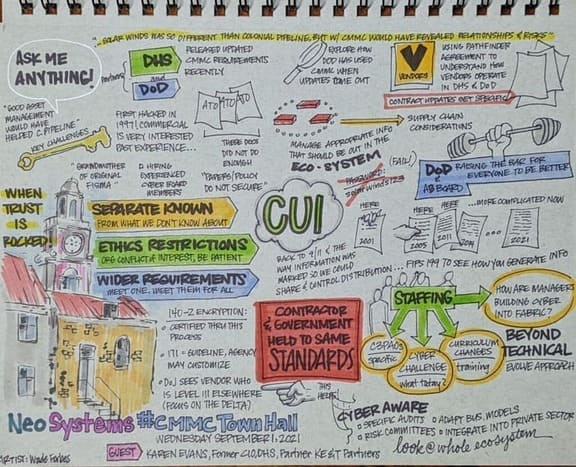 "...SOLAR WINDS WAS SO DIFFERENT THAN COLONIAL PIPELINE, BUT W/ CMMC WOULD HAVE REVEALED RELATIONSHIPS & RISKS"
ASK ME
ANYTHING!
Partners
DHS
and
DoD
RELEASED UPDATED
CMMC REQUIREMENTS
RECENTLY
EXPLORE HOW
DOD HAS USED
CMMC WHEN
UPDATES COME OUT
V
VENDORS
USING PATHFINDER
AGREEMENT TO
UNDERSTAND HOW
VENDORS OPERATE
IN DHS & DoD
CONTRACT UPDATES GET SPECIFIC
"GOOD ASSET
MANAGEMENT
WOULD HAVE
HELPED C. PIPELINE"
KEY CHALLENGES
FIRST HACKED IN
1997! COMMERCIAL
IS VERY INTERESTED
PAST EXPERIENCE...
ATO
ATO
ATO
THESE DOCS
DID NOT DO
ENOUGH
"PAPERS/POLICY
DO NOT SECURE"
"GRANDMOTHER
OF ORIGINAL
FISMA"
HIRING
EXPERIENCED
CYBER BOARD
MEMBERS
SUPPLY CHAIN
CONSIDERATIONS
MANAGE APPROPRIATE INFO
THAT SHOULD BE OUT IN THE
ECO-SYSTEM
(FAIL!)
PASSWORD:
solarwinds123
DoD RAISING THE BAR FOR
& AB BOARD EVERYONE TO BE BETTER
WHEN
TRUST
IS
ROCKED!
SEPARATE KNOWN
FROM WHAT WE DON'T KNOW ABOUT
ETHICS RESTRICTIONS
ORG CONFLICT of INTEREST, BE PATIENT
WIDER REQUIREMENTS
MEET ONE, MEET THEM FOR ALL
CUI
BACK TO 9/11 & THE
WAY INFORMATION WAS
MARKED SO WE COULD
SHARE & CONTROL DISTRIBUTION...
HERE
2001
HERE
2005
HERE
2011
2014
...
2021
...MORE COMPLICATED NOW
FIPS 199 TO SEE HOW YOU GENERATE INFO
140-2 ENCRYPTION:
CERTIFIED THRU THIS
PROCESS
171 = GUIDELINE, AGENCY
MAY CUSTOMIZE
DoJ SEES VENDOR WHO
IS LEVEL III ELSEWHERE
(FOCUS ON THE DELTA)
CONTRACTOR
& GOVERNMENT
HELD TO SAME
STANDARDS
THIS
HELPS!
STAFFING
C3PAOs
specific
CYBER
CHALLENGE
what today?
CURRICULUM
CHANGES
training
HOW ARE MANAGERS
BUILDING CYBER
INTO FABRIC?
BEYOND
TECHNICAL
EVOLVE APPROACH
CYBER AWARE
SPECIFIC AUDITS
RISK COMMITTEES
ADAPT BUS. MODELS
INTEGRATE INTO PRIVATE SECTOR
look @ whole ecosystem
Neo Systems #CMMC Town Hall
WEDNESDAY SEPTEMBER 1, 2021
GUEST
KAREN EVANS, Former CIO, DHS, Partner KE&T Partners
ARTIST: Wade Forbes